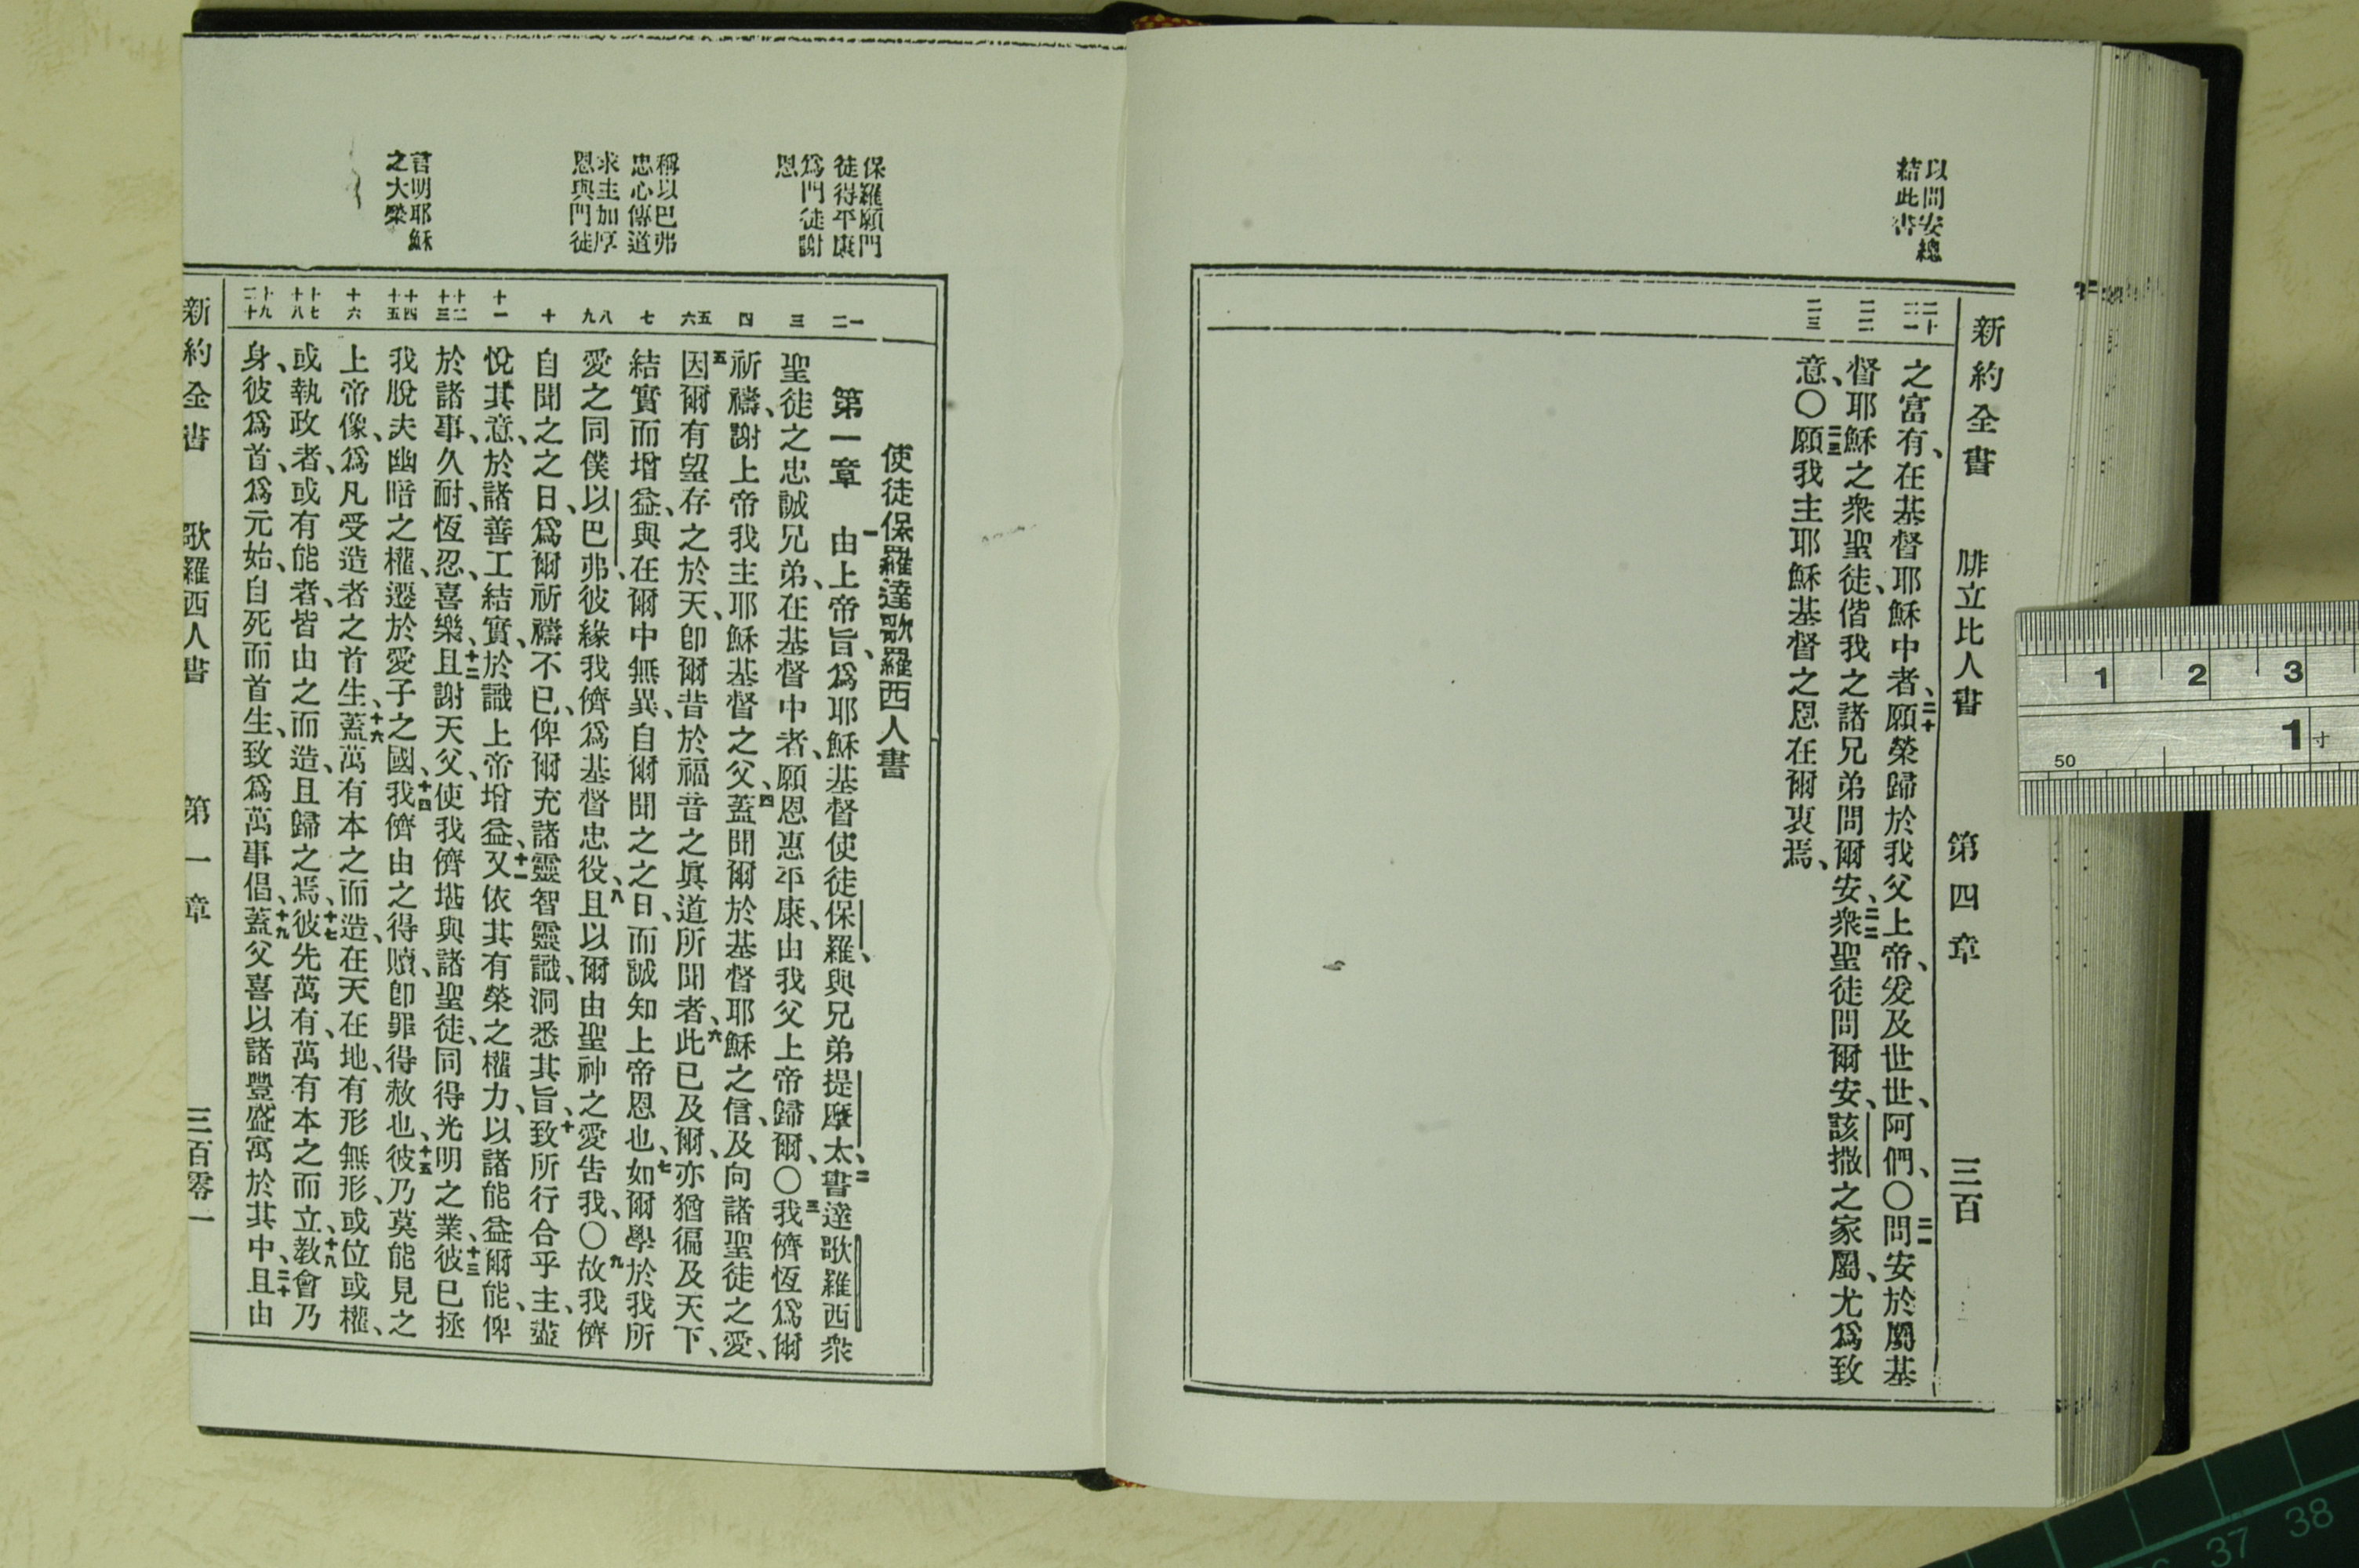 新約全書 腓立比人書 第四章 三百
以問安總
結此書
二十 二一
二二
二三
之富有、在基督耶穌中者、二十願榮歸於我父上帝、爰及世世、阿們、〇二一問安於屬基
督耶穌之衆聖徒、偕我之諸兄弟問爾安、二二衆聖徒問爾安、該撒之家屬、尤爲致
意、〇二三願我主耶穌基督之恩在爾衷焉、
保羅願門
徒得平康
爲門徒謝
恩
稱以巴弗
忠心傳道
求主加厚
恩與門徒
言明耶穌
之大榮
一 二
三
四
五 六
七
八 九
十
十一
十二 十三
十四 十五
十六
十七 十八
十九 二十
使徒保羅達歌羅西人書
第一章 一由上帝旨、爲耶穌基督使徒保羅、與兄弟提摩太、二書達歌羅西衆
聖徒之忠誠兄弟、在基督中者、願恩惠平康、由我父上帝歸爾、〇三我儕恆爲爾
祈禱、謝上帝我主耶穌基督之父、四蓋聞爾於基督耶穌之信、及向諸聖徒之愛、
五因爾有望存之於天、卽爾昔於福音之眞道所聞者、六此已及爾、亦猶徧及天下、
結實而增益、與在爾中無異、自爾聞之之日、而誠知上帝恩也、七如爾學於我所
愛之同僕以巴弗、彼緣我儕爲基督忠役、八且以爾由聖神之愛告我、〇九故我儕
自聞之之日、爲爾祈禱不已、俾爾充諸靈智靈識、洞悉其旨、十致所行合乎主、盡
悅其意、於諸善工結實、於識上帝增益、十一又依其有榮之權力、以諸能益爾能、俾
於諸事、久耐、恆忍、喜樂、十二且謝天父、使我儕堪與諸聖徒、同得光明之業、十三彼已拯
我脫夫幽暗之權、遷於愛子之國、十四我儕由之得贖、卽罪得赦也、十五彼乃莫能見之
上帝像、爲凡受造者之首生、十六蓋萬有本之而造、在天在地、有形無形、或位或權、
或執政者、或有能者、皆由之而造、且歸之焉、十七彼先萬有、萬有本之而立、十八教會乃
身、彼爲首、爲元始、自死而首生、致爲萬事倡、十九蓋父喜以諸豐盛寓於其中、二十且由
新約全書 歌羅西人書 第一章 三百零一
1 2 3
1寸
50
37 38